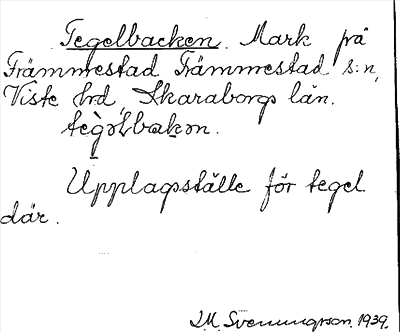 Tegelbacken. Mark på
Främmestad Främmestad s:n,
Viste hrd, Skaraborgs län.
Upplagsställe för tegel
där.
J.M. Svenungsson. 1939.